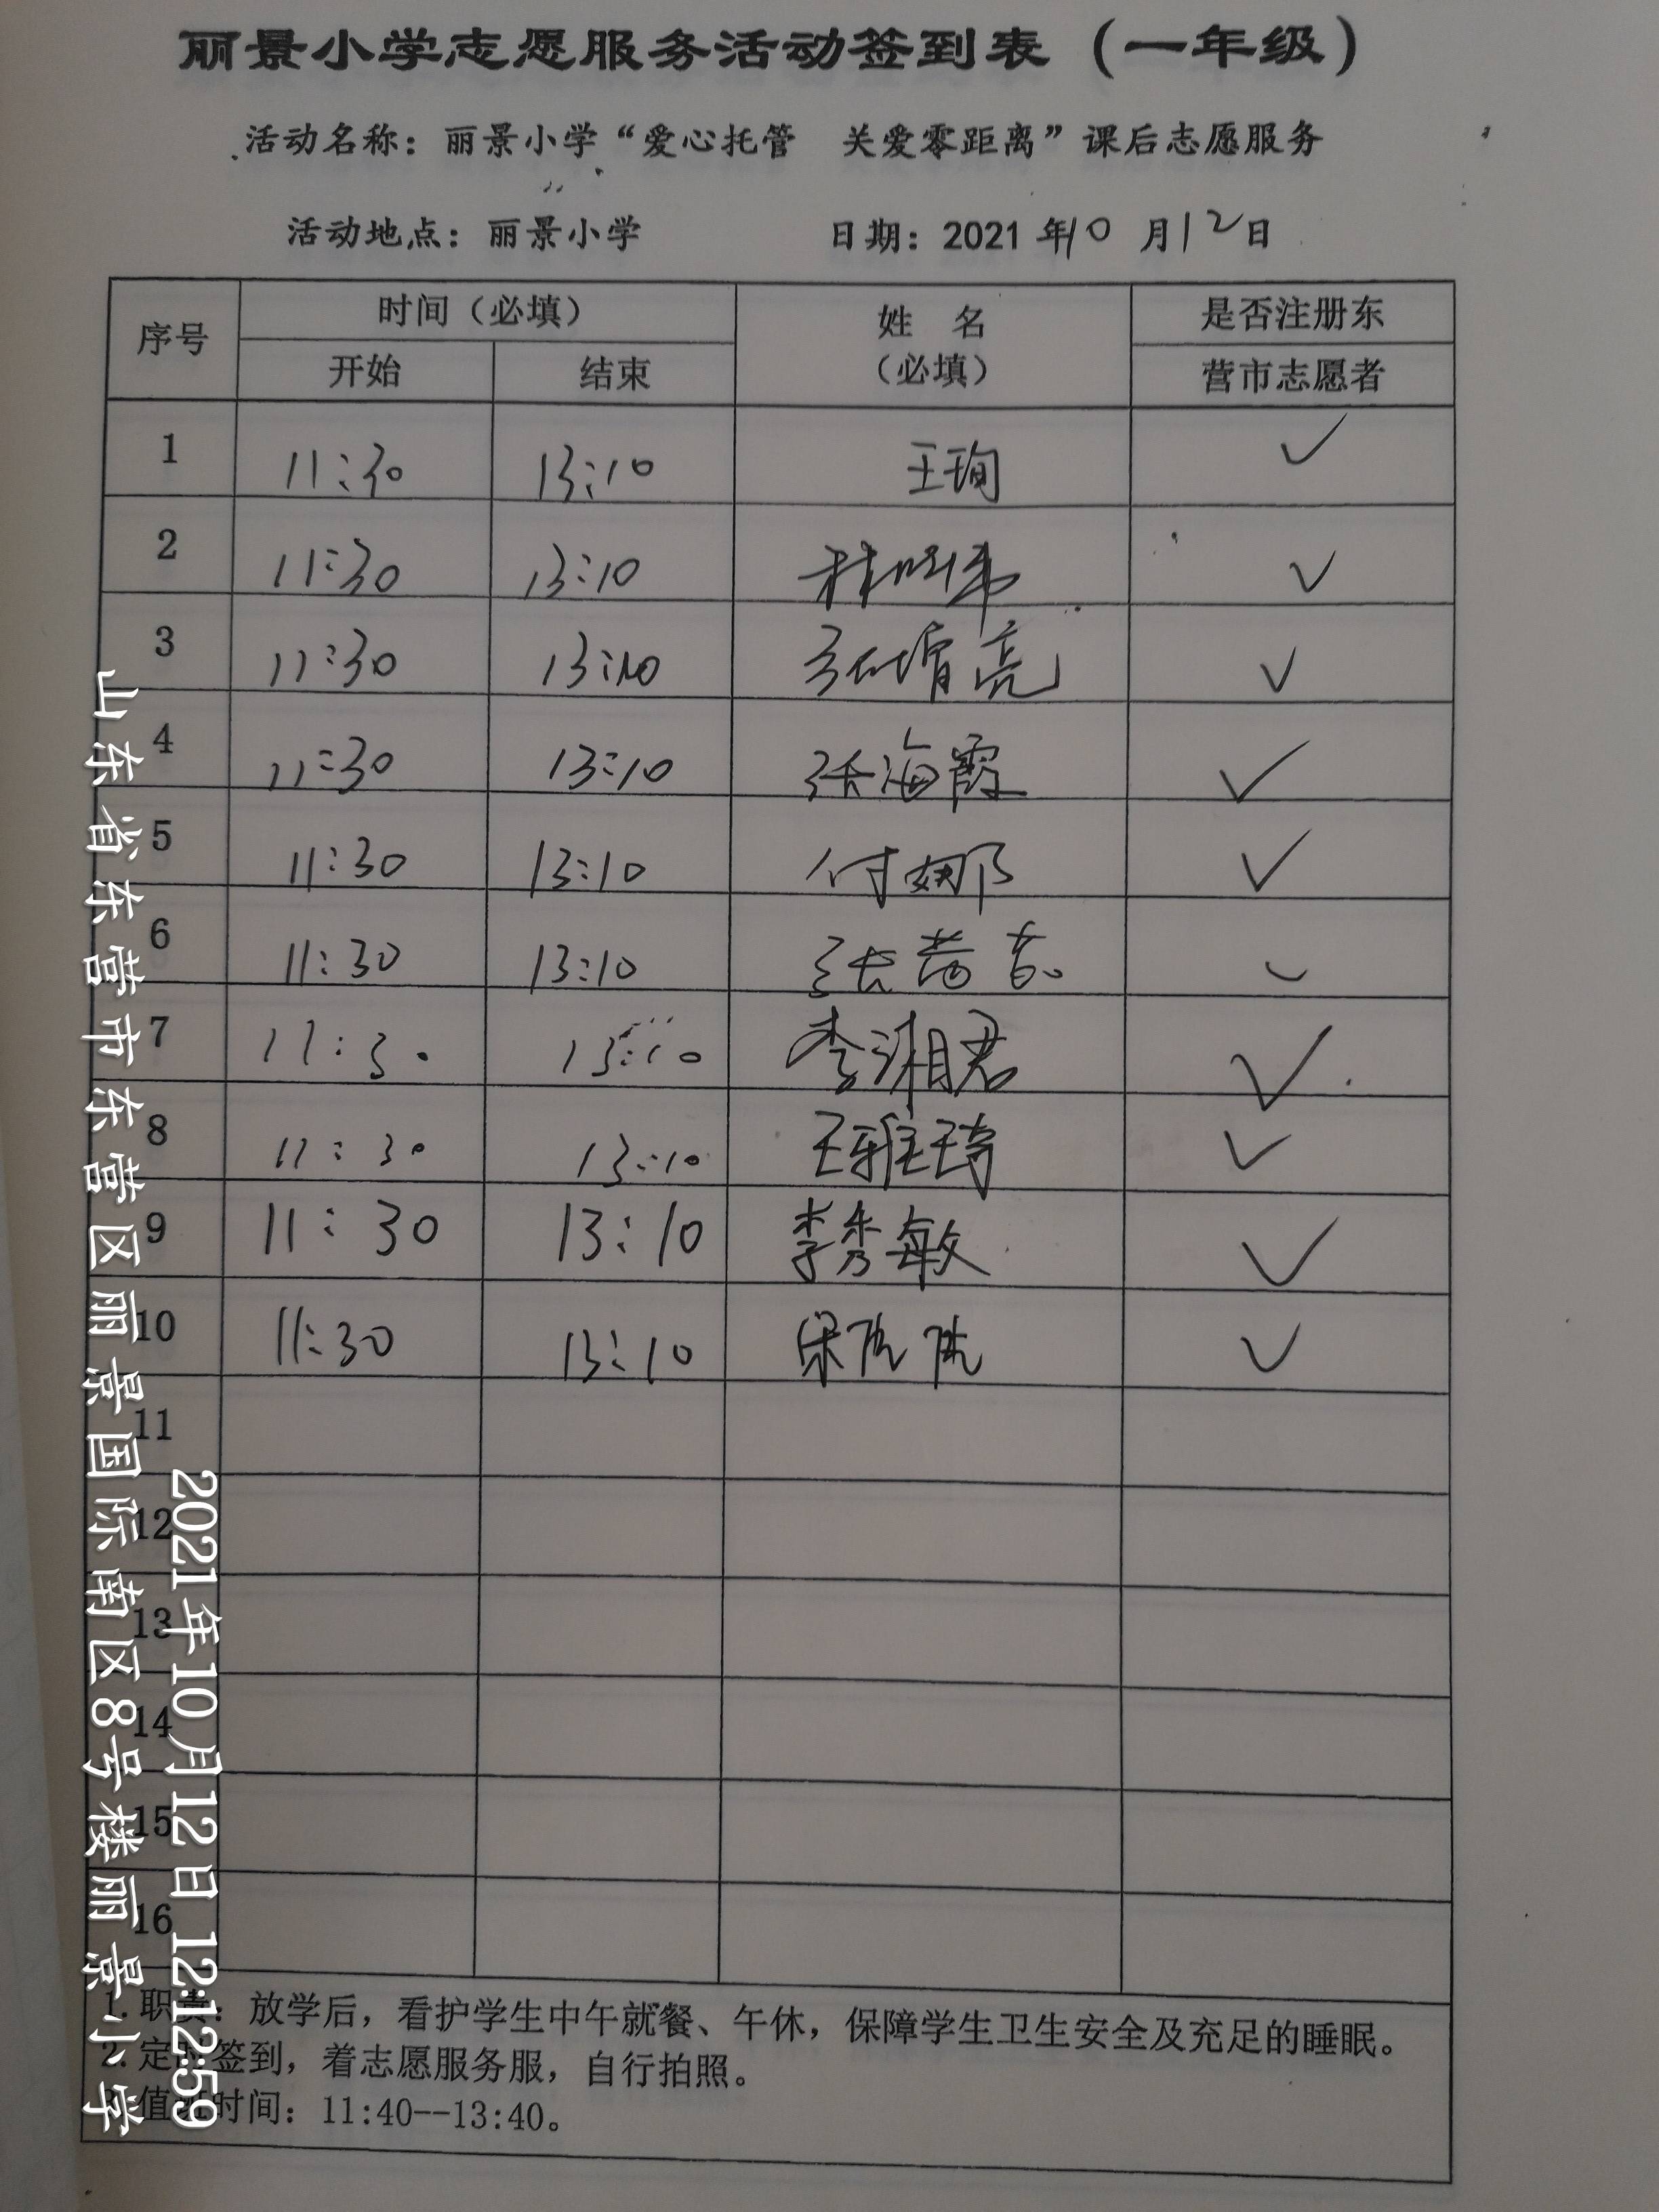 丽景小学志愿服务活动签到表（一年级）
活动名称：丽景小学“爱心托管 关爱零距离”课后志愿服务
活动地点：丽景小学 日期：2021年10月12日
序号 时间（必填） 姓 名 是否注册东
开始 结束 （必填） 营市志愿者
1 11:30 13:10 王珣 ✓
2 11:30 13:10 ✓
3 11:30 13:10 亮 ✓
4 11:30 13:10 张海霞 ✓
5 11:30 13:10 付娜 ✓
6 11:30 13:10 张 ✓
7 11:30 13:10 李湘君 ✓
8 11:30 13:10 王雅琦 ✓
9 11:30 13:10 李秀敏 ✓
10 11:30 13:10 ✓
11
12
13
14
15
16
1.职责：放学后，看护学生中午就餐、午休，保障学生卫生安全及充足的睡眠。
2.定时签到，着志愿服务服，自行拍照。
3.值班时间：11:40--13:40。
2021年10月12日 12:12:59
山东省东营市东营区丽景国际南区8号楼丽景小学